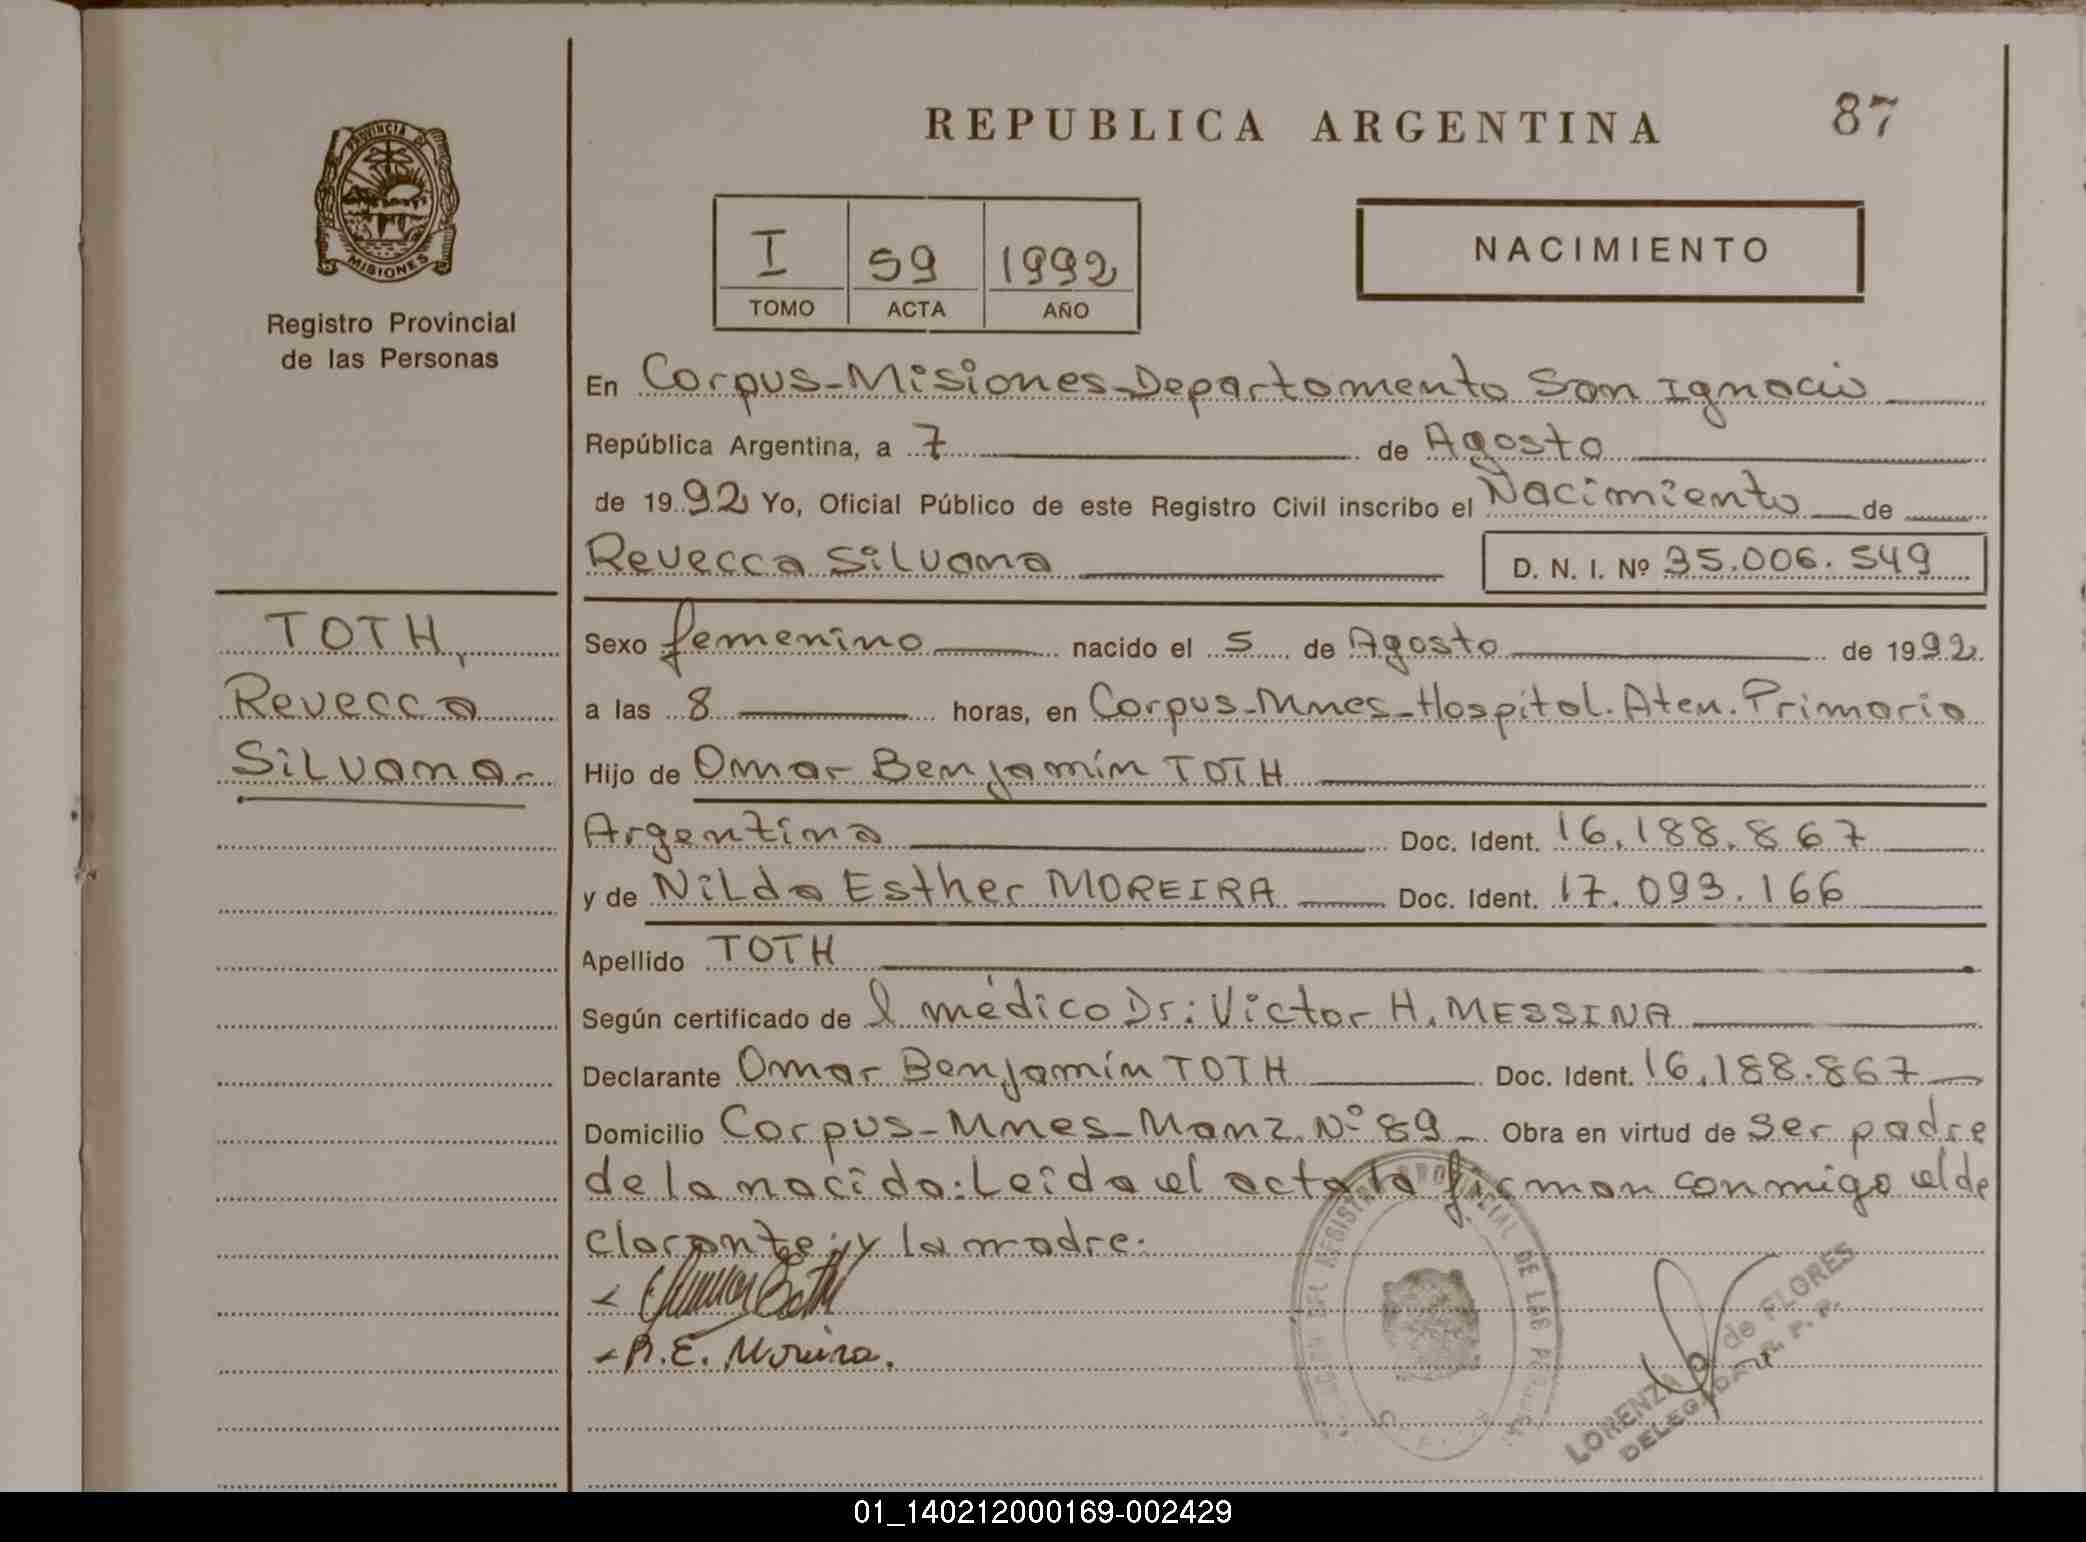 REPUBLICA ARGENTINA
87
PROVINCIA DE
MISIONES
Registro Provincial
de las Personas
I 59 1992
TOMO ACTA AÑO
NACIMIENTO
En Corpus-Misiones-Departamento San Ignacio
República Argentina, a 7 de Agosto
de 1992 Yo, Oficial Público de este Registro Civil inscribo el Nacimiento de
Revecca Silvana D. N. I. Nº 35.006.549
TOTH,
Revecca
Silvana.-
Sexo femenino nacido el 5 de Agosto de 1992
a las 8 horas, en Corpus-Mnes-Hospital. Aten. Primaria
Hijo de Omar Benjamín TOTH
Argentina Doc. Ident. 16.188.867
y de Nilda Esther MOREIRA Doc. Ident. 17.093.166
Apellido TOTH
Según certificado de l médico Dr: Victor H. MESSINA
Declarante Omar Benjamín TOTH Doc. Ident. 16.188.867
Domicilio Corpus-Mnes-Manz. Nº 89 Obra en virtud de ser padre
de la nacida: Leída el acta la firman conmigo el de
clarante; y la madre.
E. Moreira.
DEL REGISTRO PROVINCIAL DE LAS
LORENZA de FLORES
DELEGADA
01_140212000169-002429